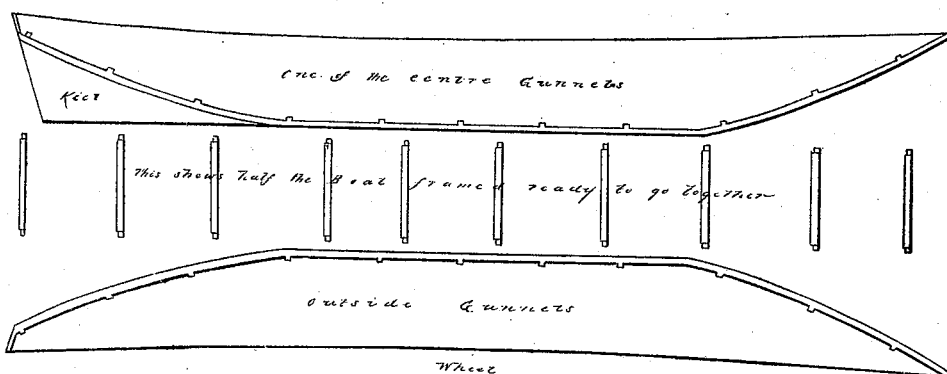 One of the centre Gunnels
Keel
This shows half the Boat framed ready to go together
Outside Gunnels
Wheel